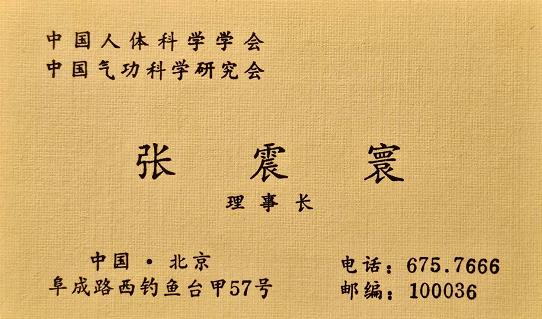 中国人体科学学会
中国气功科学研究会
张震寰
理事长
中国·北京
阜成路西钓鱼台甲57号
电话：675.7666
邮编：100036